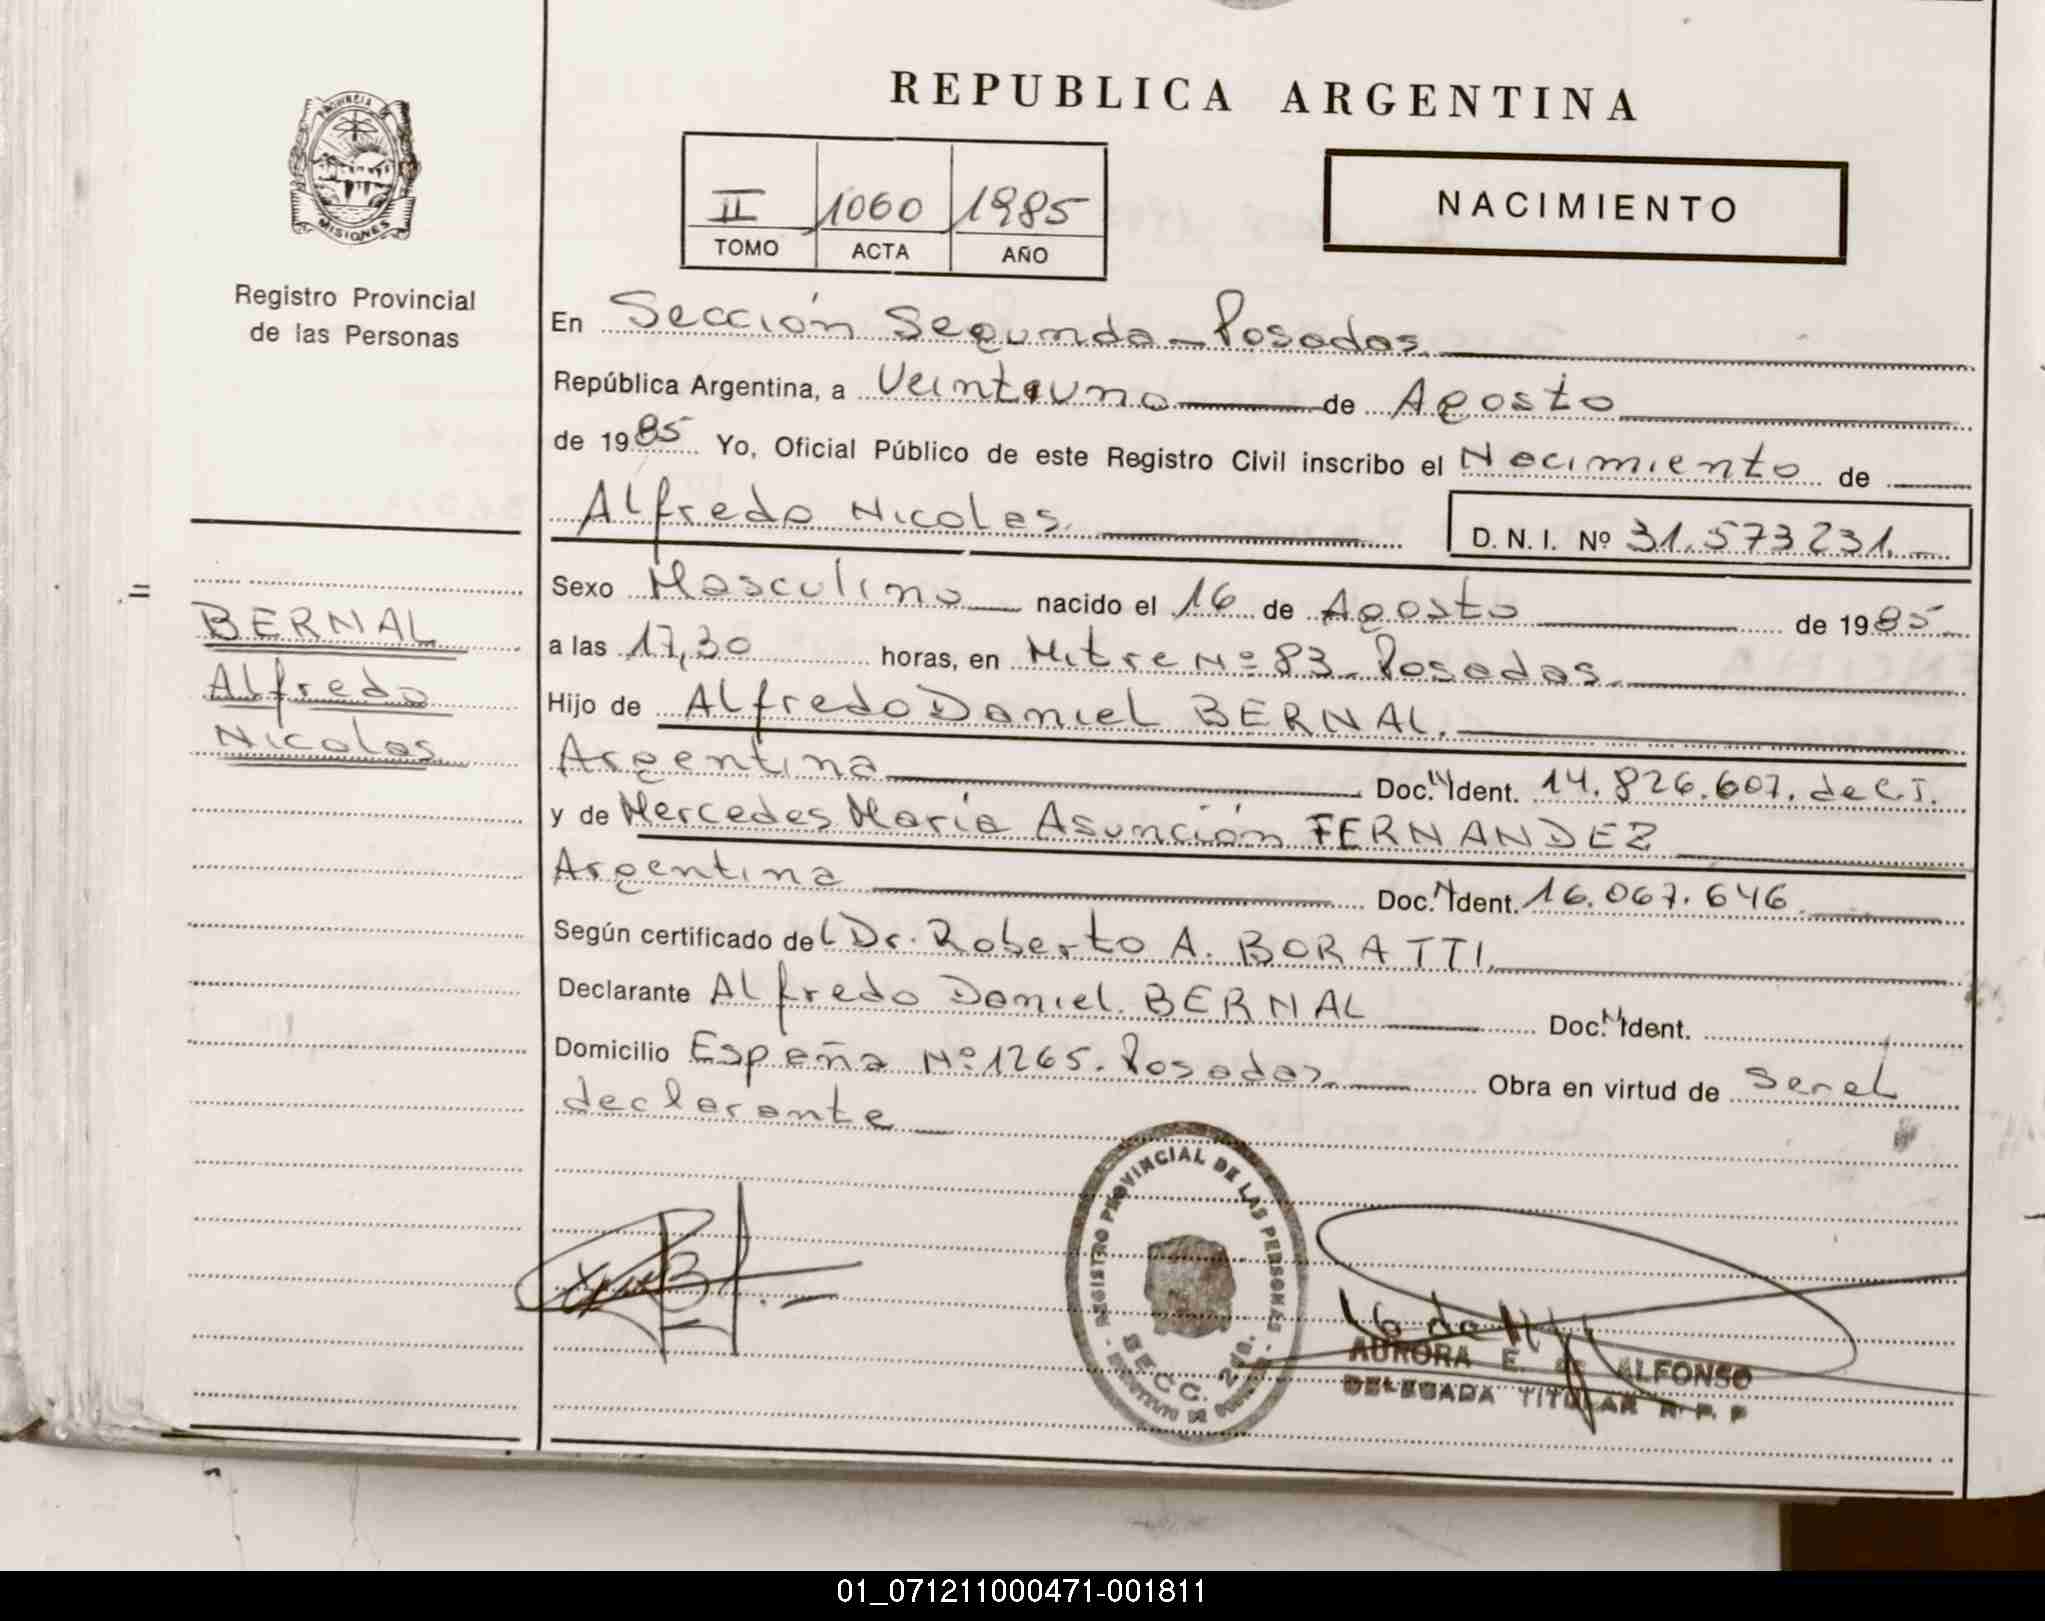 REPUBLICA ARGENTINA
PROVINCIA DE
MISIONES
Registro Provincial
de las Personas
II 1060 1985
TOMO ACTA AÑO
NACIMIENTO
En Sección Segunda - Posadas.
República Argentina, a Veintiuno de Agosto
de 1985 Yo, Oficial Público de este Registro Civil inscribo el Nacimiento de
Alfredo Nicolas.
D. N. I. Nº 31.573231.
BERNAL
Alfredo
Nicolas.
Sexo Masculino nacido el 16 de Agosto de 1985
a las 17,30 horas, en Mitre Nº 83 - Posadas.
Hijo de Alfredo Daniel BERNAL.
Argentina Doc. Ident. 14.826.607. de C.I.
y de Mercedes María Asunción FERNANDEZ
Argentina Doc. Ident. 16.067.646
Según certificado del Dr. Roberto A. BORATTI.
Declarante Alfredo Daniel BERNAL Doc. Ident.
Domicilio España Nº 1265. Posadas Obra en virtud de ser el
declarante
REGISTRO PROVINCIAL DE LAS PERSONAS
SECC. 2da.
AURORA E. de ALFONSO
DELEGADA TITULAR R. P. P
01_071211000471-001811